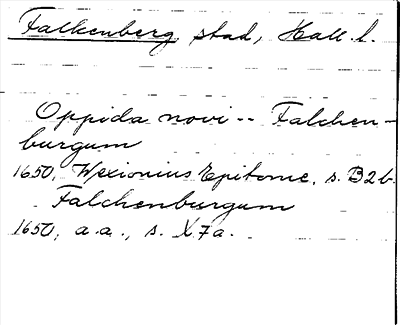 Falkenberg stad, Hall. l.
Oppida novi -- Falchen-
burgum
1650, Wexionius Epitome, s. B2b.
Falchenburgum
1650, a.a., s. X7a.